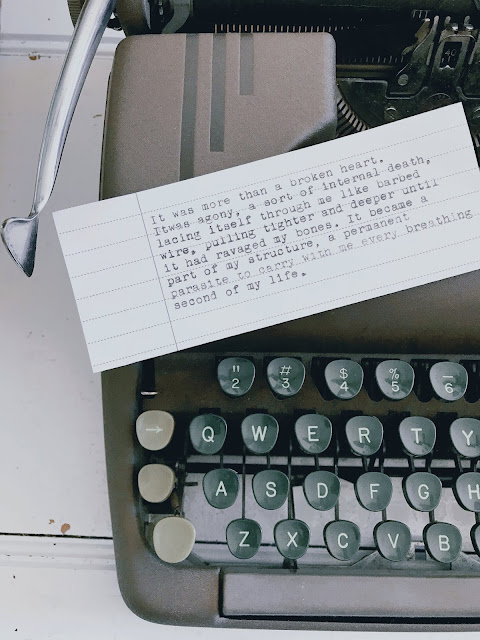 It was more than a broken heart.
Itwas agony, a sort of internal death,
lacing itself through me like barbed
wire, pulling tighter and deeper until
it had ravaged my bones. It became a
part of my structure, a permanent
parasite to carry with me every breathing
second of my life.
" # $ % _
2 3 4 5 6
→ Q W E R T Y
A S D F G H
Z X C V B